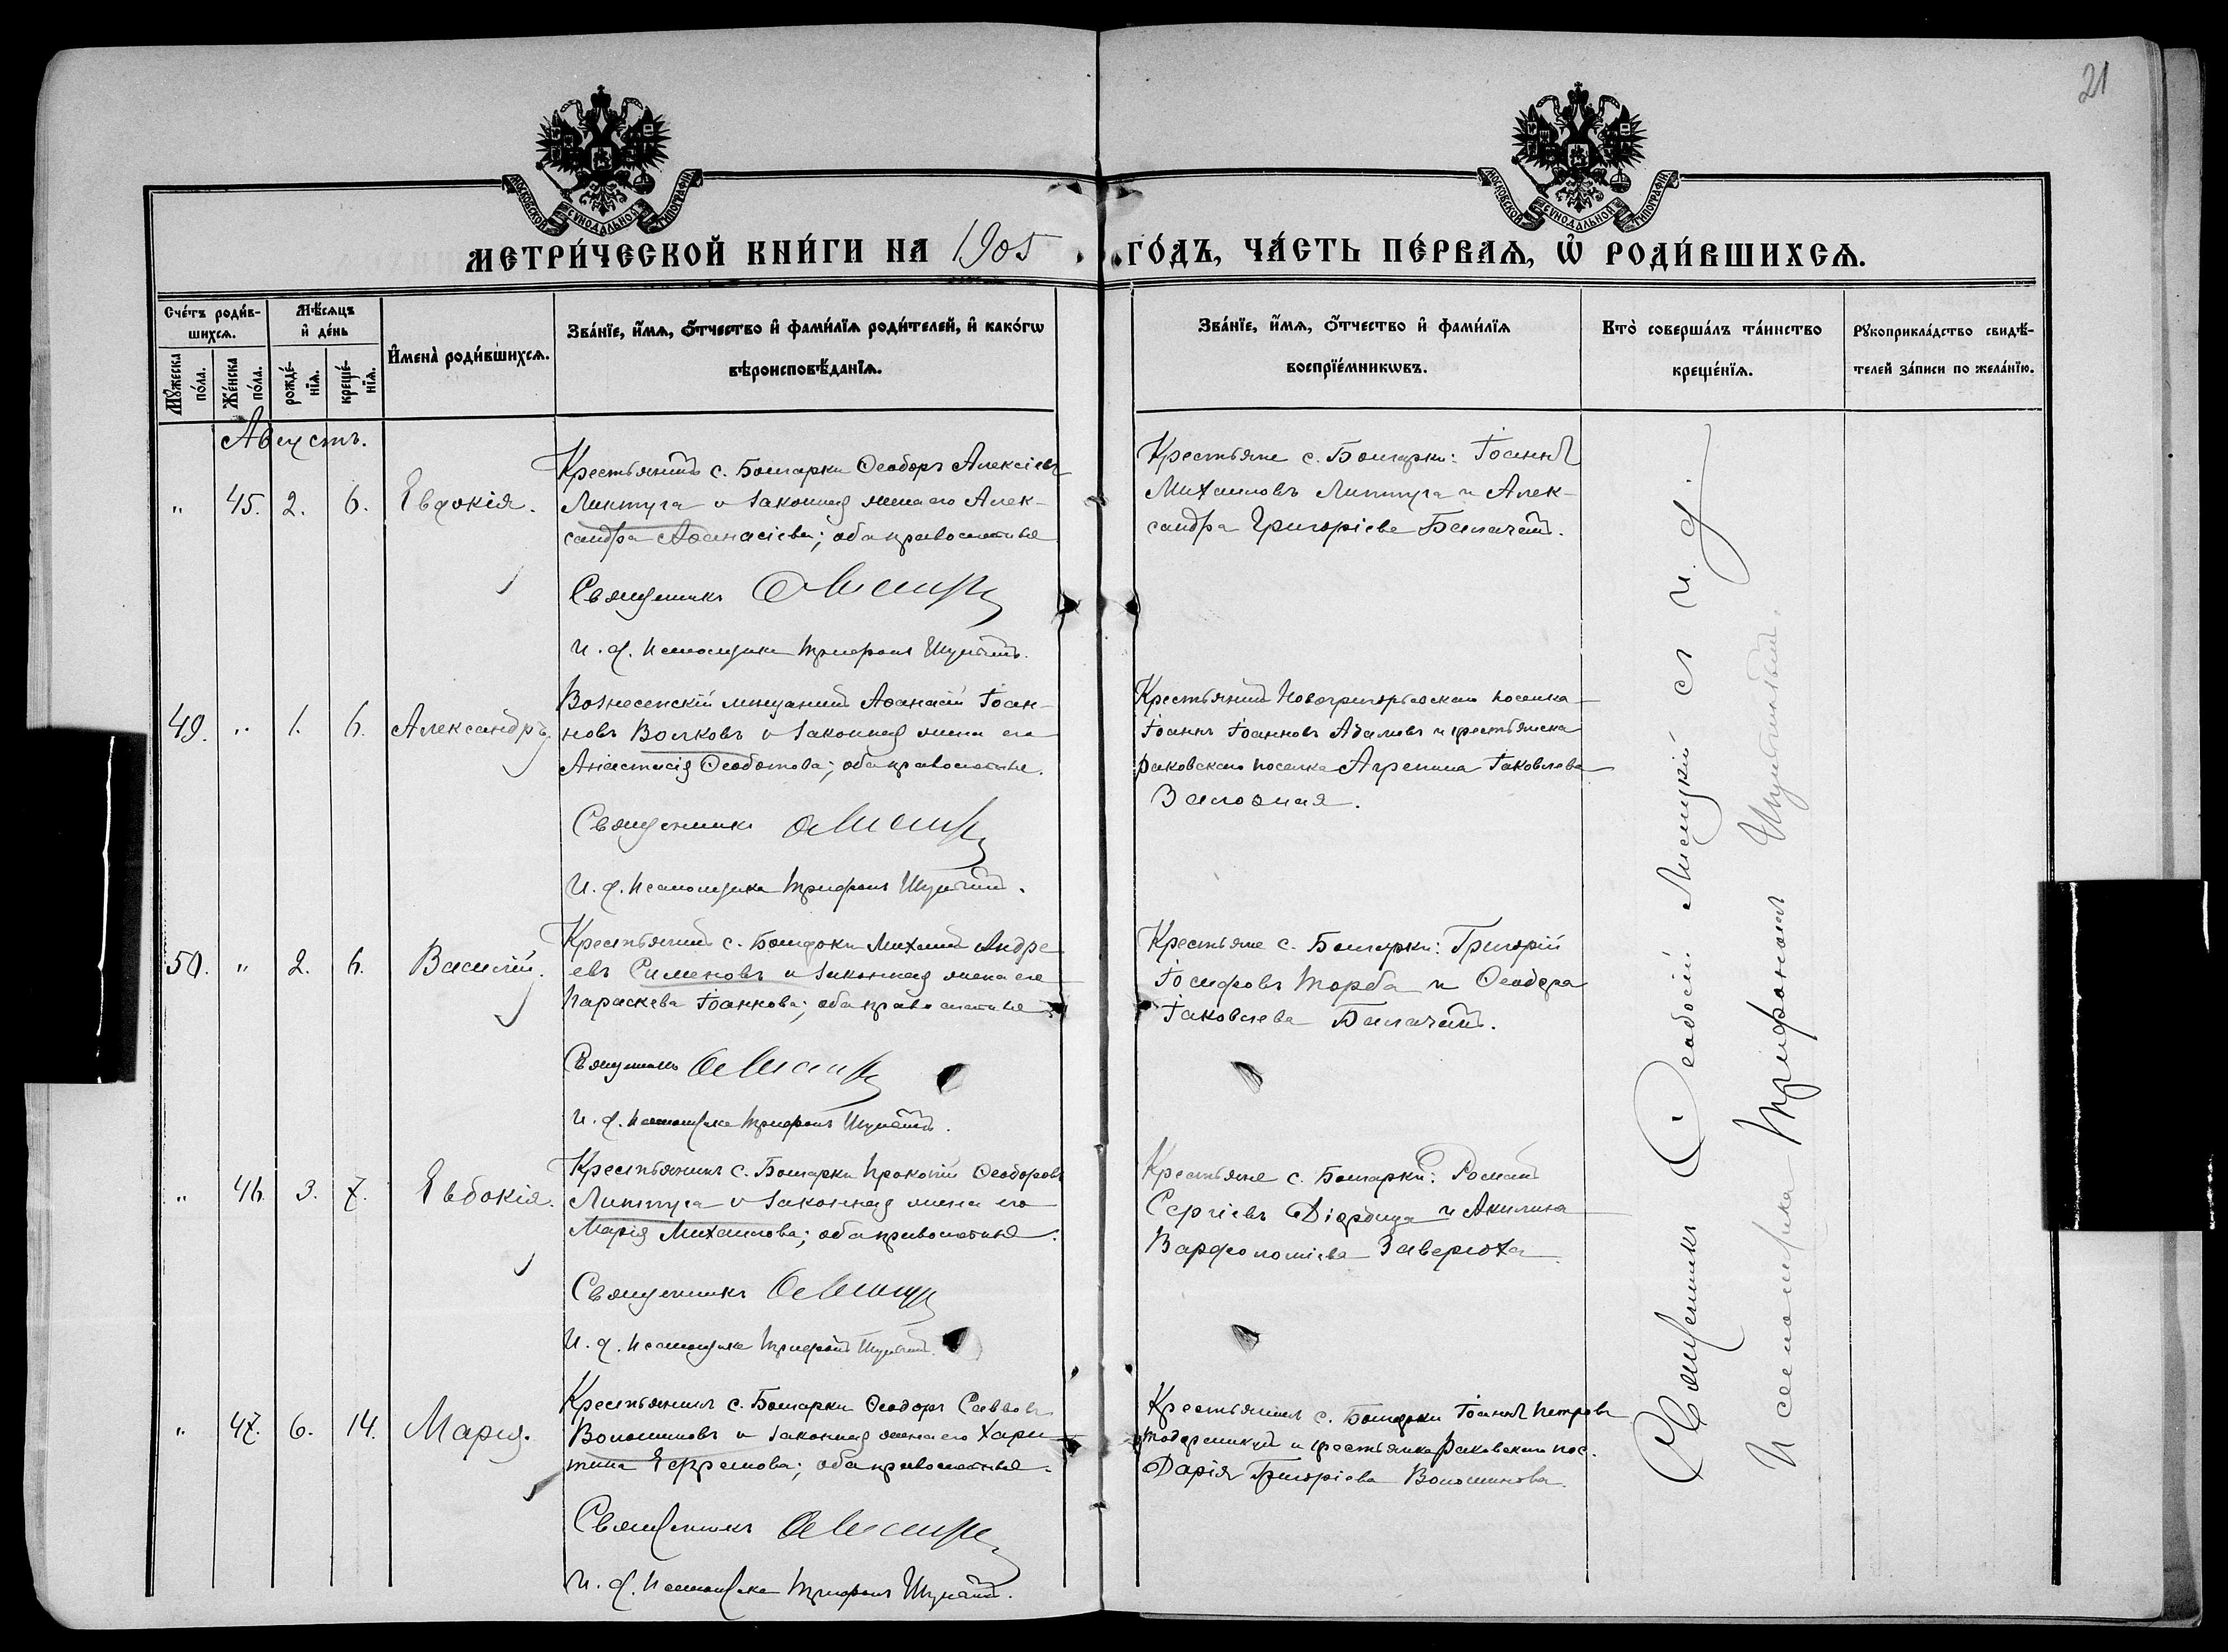 21
МОСКОВСКОЙ СѴНОДАЛЬНОЙ ТИПОГРАФІИ
МОСКОВСКОЙ СѴНОДАЛЬНОЙ ТИПОГРАФІИ
МЕТРИ́ЧЕСКОЙ КНИ́ГИ НА 1905 ГО́ДЪ, ЧА́СТЬ ПЕ́РВАѦ, Ѡ РОДИ́ВШИХСѦ.
Сче́тъ роди́в-
шихсѧ.
Мꙋжеска по́ла.
Же́нска по́ла.
Мѣ́сѧцъ
и҆ де́нь
рожде́-
нїѧ.
креще́-
нїѧ.
И҆мена̀ роди́вшихсѧ.
Зва́нїе, и҆́мѧ, ѻ҆́тчество и҆ фами́лїѧ роди́телей, и҆ како́гѡ
вѣроисповѣ́данїѧ.
Зва́нїе, и҆́мѧ, ѻ҆́тчество и҆ фами́лїѧ
воспрїе́мникѡвъ.
Кто̀ соверша́лъ та́инство
креще́нїѧ.
Рꙋкоприкла́дство свидѣ́-
телей за́писи по жела́нїю.
Августъ.
" 45. 2. 6. Евдокія.
Крестьянинъ с. Болгарки Ѳеодоръ Алексіевъ
Линтуга и законная жена его Алек-
сандра Аѳанасіева; оба православные
Священникъ
И. д. псаломщика Трифонъ
Крестьяне с. Болгарки: Іоаннъ
Михаиловъ Линтуга и Алек-
сандра Григоріева
49. " 1. 6. Александръ.
Вознесенскій мещанинъ Аѳанасій Іоан-
новъ Волковъ и законная жена его
Анастасія Ѳеодотова; оба православные.
Священникъ
И. д. псаломщика Трифонъ
Крестьянинъ Новогригорьевскаго поселка
Іоаннъ Іоанновъ Адамовъ и крестьянка
Раковскаго поселка Агрепина Іаковлева
Залозная.
50. " 2. 6. Василій.
Крестьянинъ с. Болгарки Михаилъ Андре-
евъ Сименовъ и законная жена его
Параскева Іоаннова; оба православные.
Священникъ
И. д. псаломщика Трифонъ
Крестьяне с. Болгарки: Григорій
Іосифовъ Торба и Ѳеодора
Іаковлева
" 46. 3. 7. Евдокія.
Крестьянинъ с. Болгарки Прокопій Ѳеодоровъ
Линтуга и законная жена его
Марія Михаилова; оба православные.
Священникъ
И. д. псаломщика Трифонъ
Крестьяне с. Болгарки: Романъ
Сергіевъ и Акилина
Варфоломіева Заверюха
" 47. 6. 14. Марія.
Крестьянинъ с. Болгарки Ѳеодоръ Саввовъ
Волошиновъ и законная жена его Хари-
тина Ефремова; оба православные.
Священникъ
И. д. псаломщика Трифонъ
Крестьянинъ с. Болгарки Іоаннъ Петровъ
и крестьянка Раковскаго пос.
Дарія Григоріева Волошинова.
Священникъ Ѳеодосій Лисицкій съ и. д.
Псаломщика Трифономъ